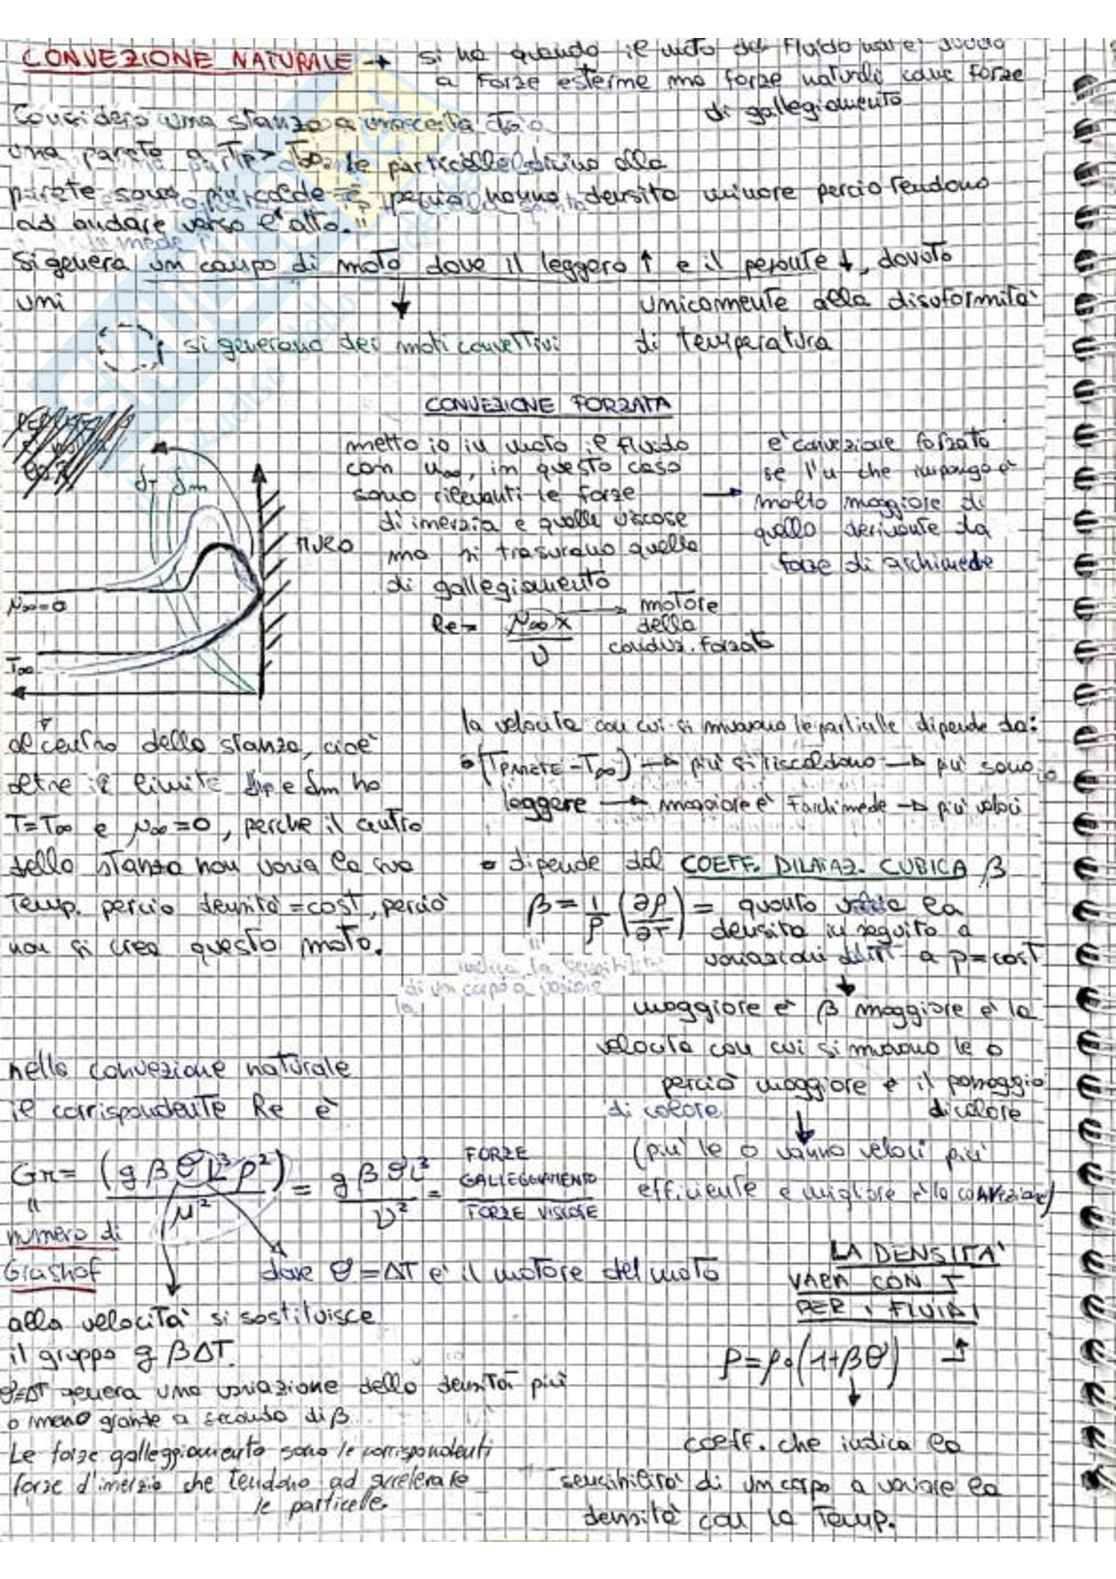 CONVEZIONE NATURALE → si ha quando il moto del fluido non è dovuto
a forze esterne ma forze naturali come forze
di gallegiamento
Considero una stanza a una certa T∞
una parete a Tp > T∞. Le particelle vicino alla
parete sono più calde e perciò hanno densità minore perciò tendono
ad andare verso l'alto."
Si genera un campo di moto dove il leggero ↑ e il pesante ↓, dovuto
uni
unicamente alla disuformità
di temperatura
si generano dei moti convettivi
CONVEZIONE FORZATA
metto io in moto il fluido
con u∞, in questo caso
sono rilevanti le forze
di inerzia e quelle viscose
ma si trascurano quelle
di gallegiamento
→ è convezione forzata
se l'u che impongo è
molto maggiore di
quello derivante da
forze di archimede
Re = u∞x/υ → motore
della
conduz. forzata
δT δm
MURO
u∞=0
T∞
al centro della stanza, cioè
oltre il limite δT e δm ho
T=T∞ e u∞=0, perché il centro
della stanza non varia la sua
Temp. perciò densità=cost, perciò
non si crea questo moto.
la velocità con cui si muovono le particelle dipende da:
• (TPARETE - T∞) → più si riscaldano → più sono
leggere → maggiore è Farchimede → più veloci
• dipende dal COEFF. DILATAZ. CUBICA β
β = 1/ρ (∂ρ/∂T) = quanto varia la
densità in seguito a
variazioni di T a p=cost
indica la sensibilità
di un corpo a variare
la
maggiore è β maggiore è la
velocità con cui si muovono le o
perciò maggiore è il passaggio
di calore
di calore
(più le o vanno veloci più
efficiente e migliore è la convezione)
nella convezione naturale
il corrispondente Re è
Gr = (g β θ L³ ρ²)/μ² = g β θ L³/υ² = FORZE GALLEGGIAMENTO/FORZE VISCOSE
"
numero di
Grashof
dove θ = ΔT è il motore del moto
alla velocità si sostituisce
il gruppo g βΔT.
θ=ΔT genera una variazione della densità più
o meno grande a seconda di β
Le forze galleggiamento sono le corrispondenti
forze d'inerzia che tendono ad accelerare
le particelle.
LA DENSITA'
VARIA CON T
PER I FLUIDI
ρ=ρ₀(1+βθ)
coeff. che indica la
sensibilità di un corpo a variare la
densità con la Temp.